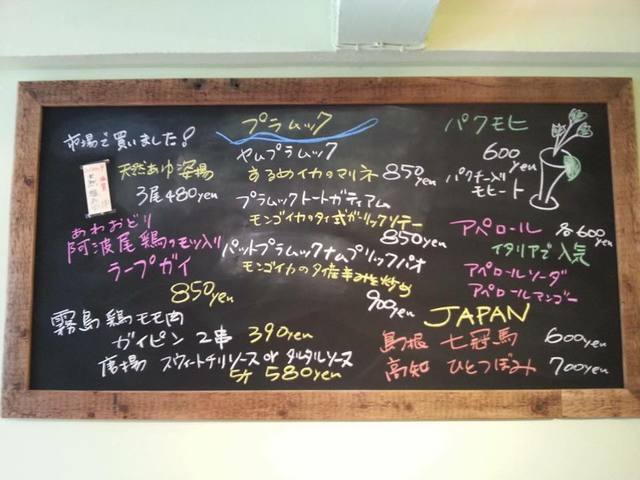 市場で買いました!
天然あゆ 姿揚
3尾 480yen
あわおどり
阿波尾鶏のモツ入り
ラープガイ
850yen
霧島鶏モモ肉
ガイピン 2串 390yen
唐揚 スウィートチリソース or タルタルソース
5ケ 580yen
プラムック
ヤムプラムック
するめイカのマリネ 850yen
プラムックトートガティアム
モンゴイカのタイ式ガーリックソテー
850yen
パットプラムックナムプリックパオ
モンゴイカのタイ産辛みそ炒め
900yen
パクモヒ
600yen
パクチー入り
モヒート
アペロール 各600yen
イタリアで人気
アペロールソーダ
アペロールマンゴー
JAPAN
島根 七冠馬 600yen
高知 ひとつぼみ 700yen